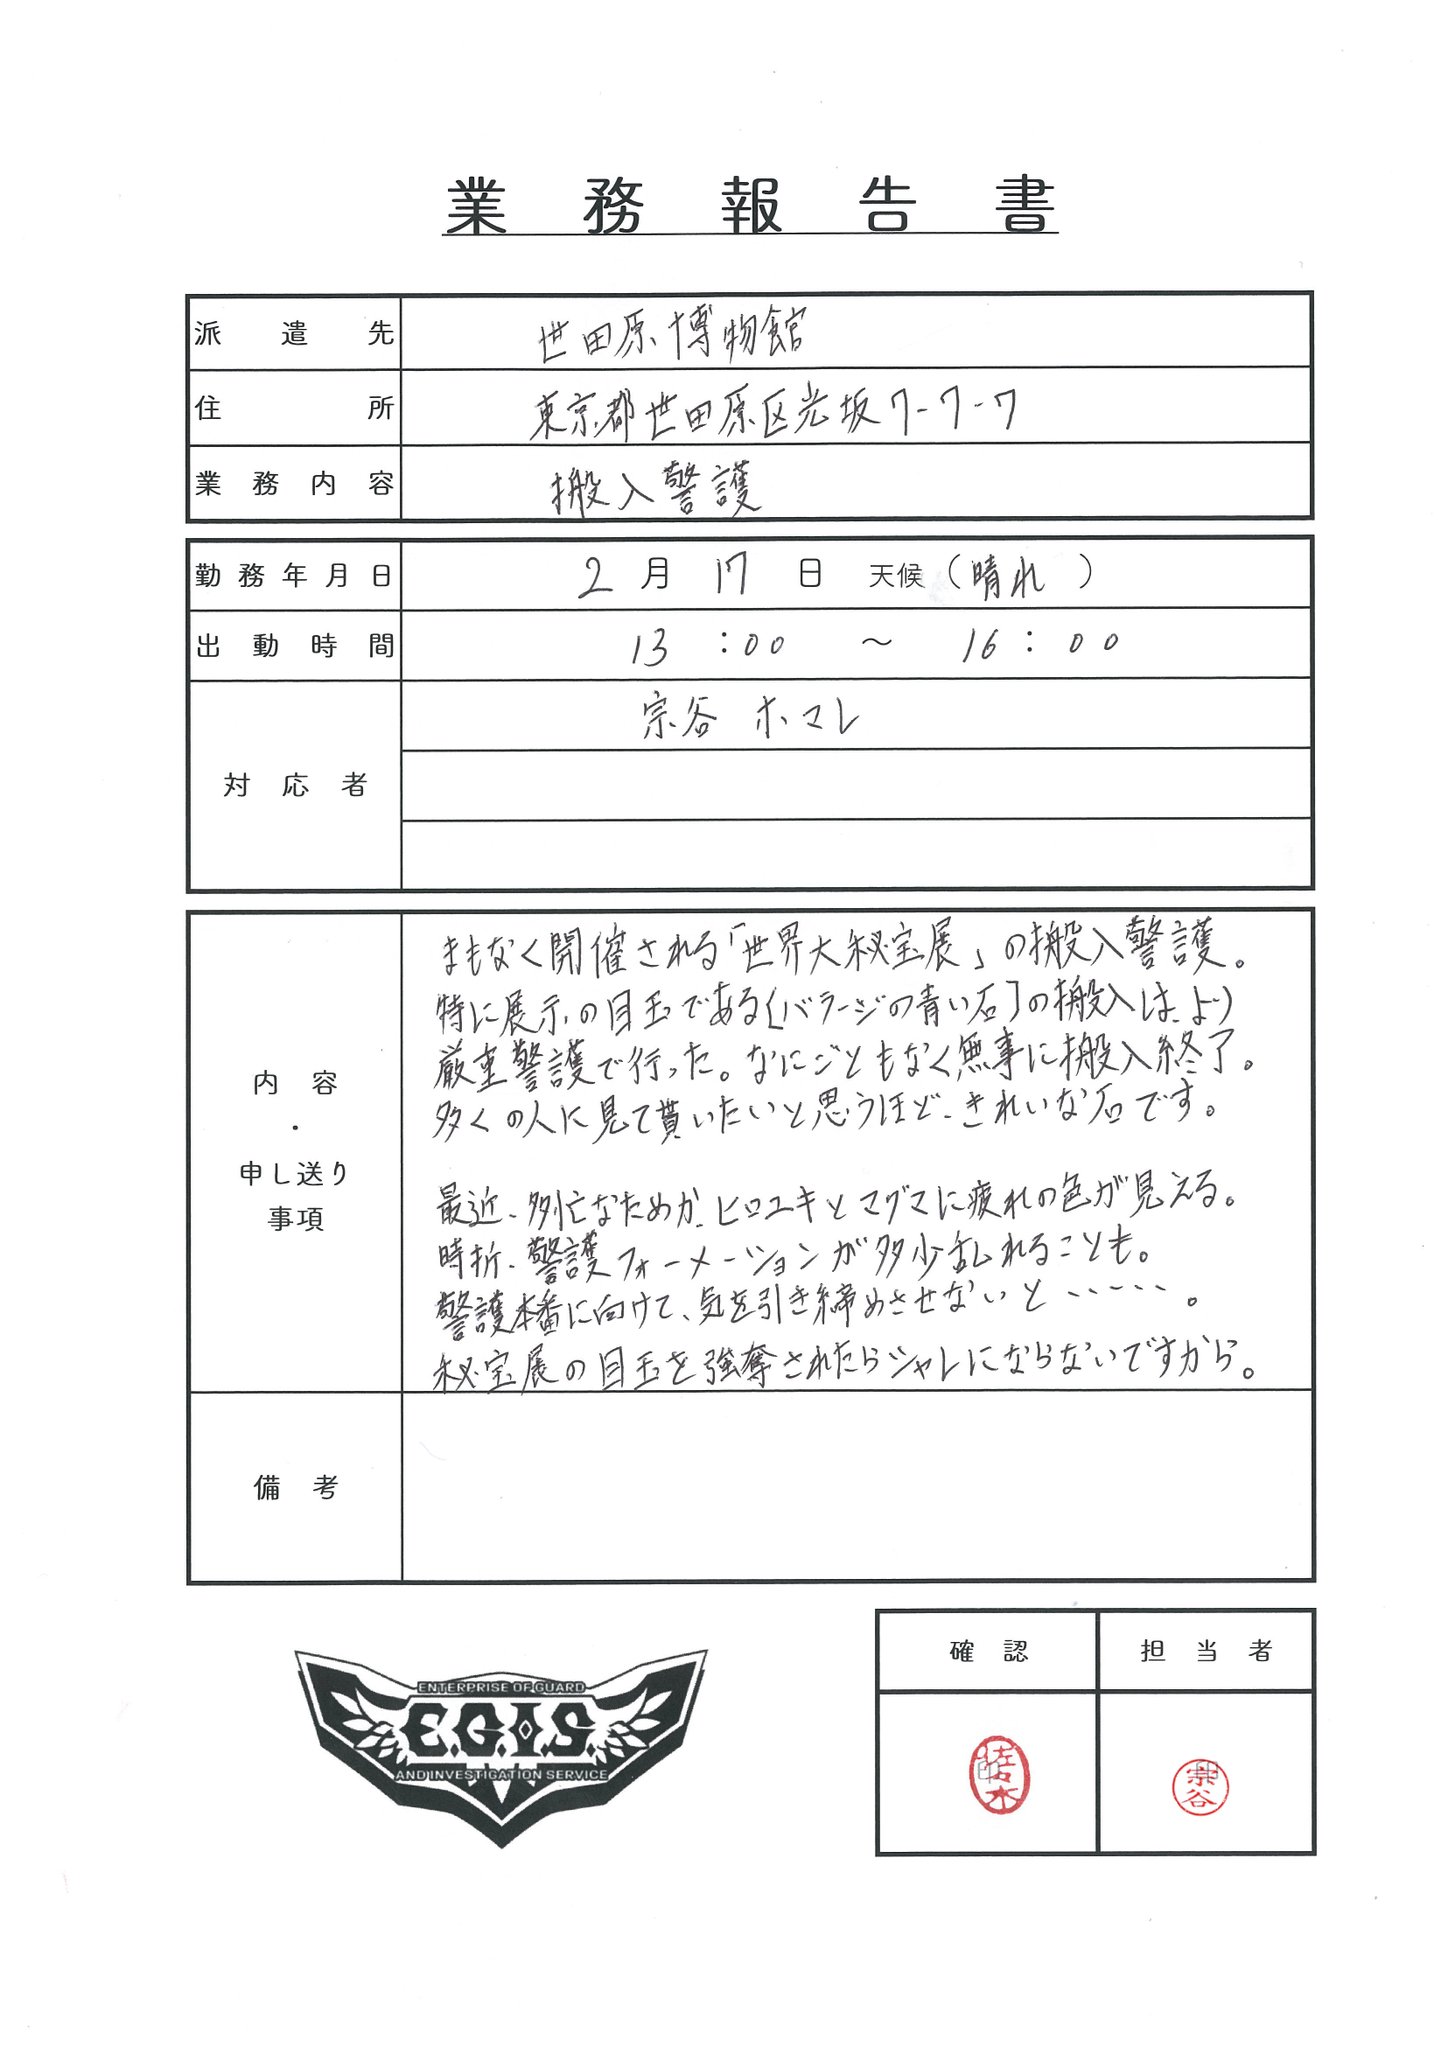 業務報告書
派遣先 世田原博物館
住所 東京都世田原区光坂7-7-7
業務内容 搬入警護
勤務年月日 2月17日 天候（晴れ）
出動時間 13:00 〜 16:00
対応者 宗谷 ホマレ
内容・申し送り事項
まもなく開催される「世界大秘宝展」の搬入警護。
特に展示の目玉である[バラージの青い石]の搬入は、より
厳重警護で行った。なにごともなく無事に搬入終了。
多くの人に見て貰いたいと思うほど、きれいな石です。
最近、多忙なためか、ヒロユキとマグマに疲れの色が見える。
時折、警護フォーメーションが多少乱れることも。
警護本番に向けて、気を引き締めさせないと・・・・・。
秘宝展の目玉を強奪されたらシャレにならないですから。
備考
ENTERPRISE OF GUARD
E.G.I.S.
AND INVESTIGATION SERVICE
確認 担当者
印 佐々木 印 宗谷